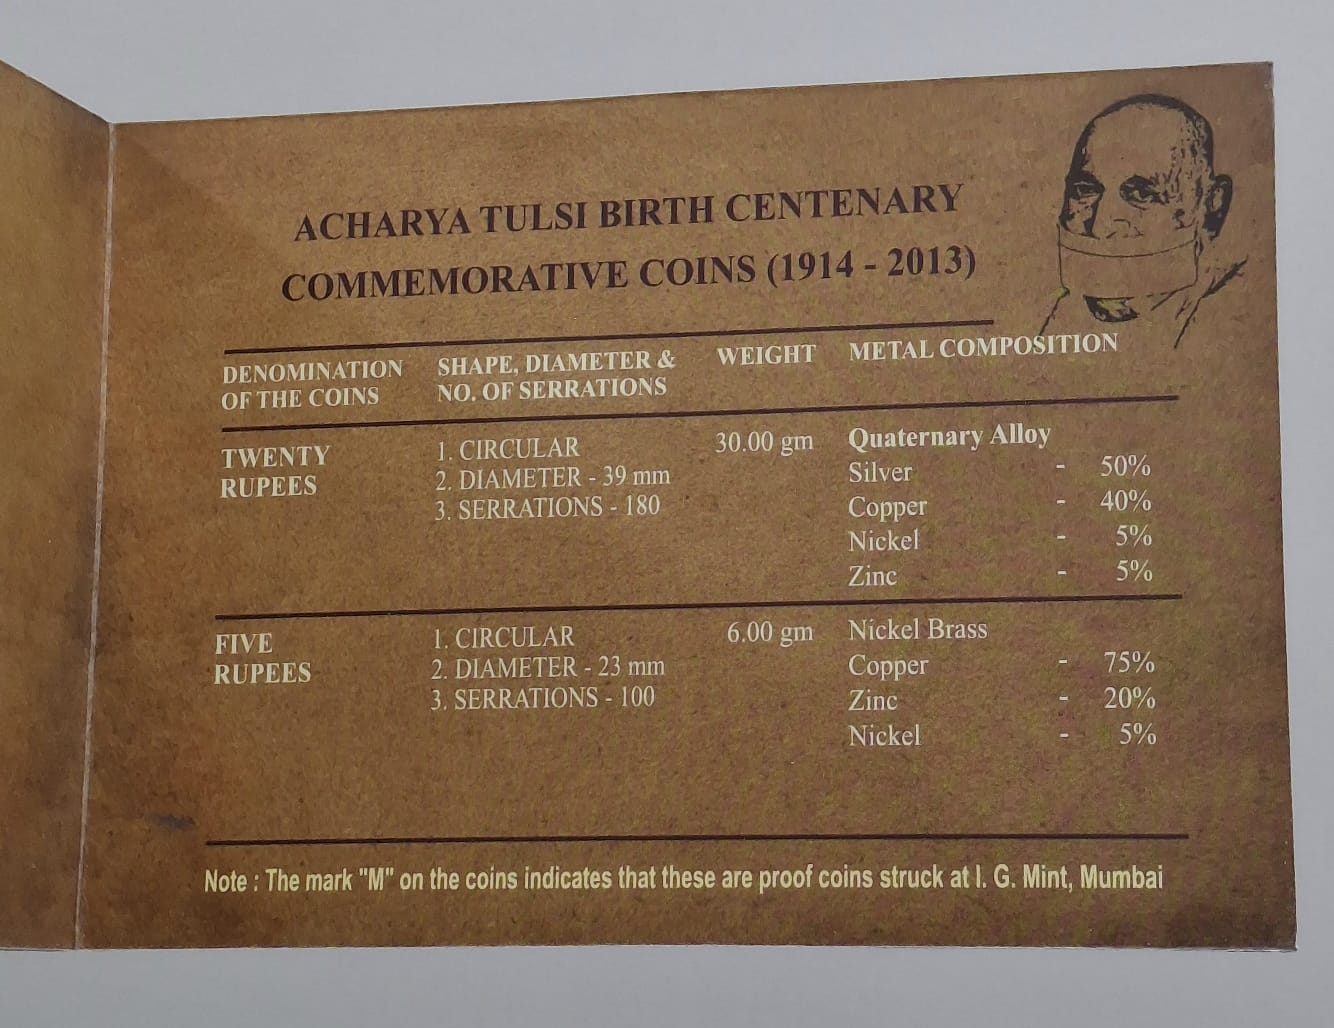 ACHARYA TULSI BIRTH CENTENARY
COMMEMORATIVE COINS (1914 - 2013)
DENOMINATION OF THE COINS SHAPE, DIAMETER & NO. OF SERRATIONS WEIGHT METAL COMPOSITION
TWENTY RUPEES 1. CIRCULAR 30.00 gm Quaternary Alloy
2. DIAMETER - 39 mm Silver - 50%
3. SERRATIONS - 180 Copper - 40%
Nickel - 5%
Zinc - 5%
FIVE RUPEES 1. CIRCULAR 6.00 gm Nickel Brass
2. DIAMETER - 23 mm Copper - 75%
3. SERRATIONS - 100 Zinc - 20%
Nickel - 5%
Note : The mark "M" on the coins indicates that these are proof coins struck at I. G. Mint, Mumbai